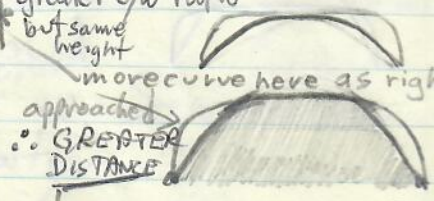 but same
height
more curve here as righ
approached
∴ GREATER
DISTANCE